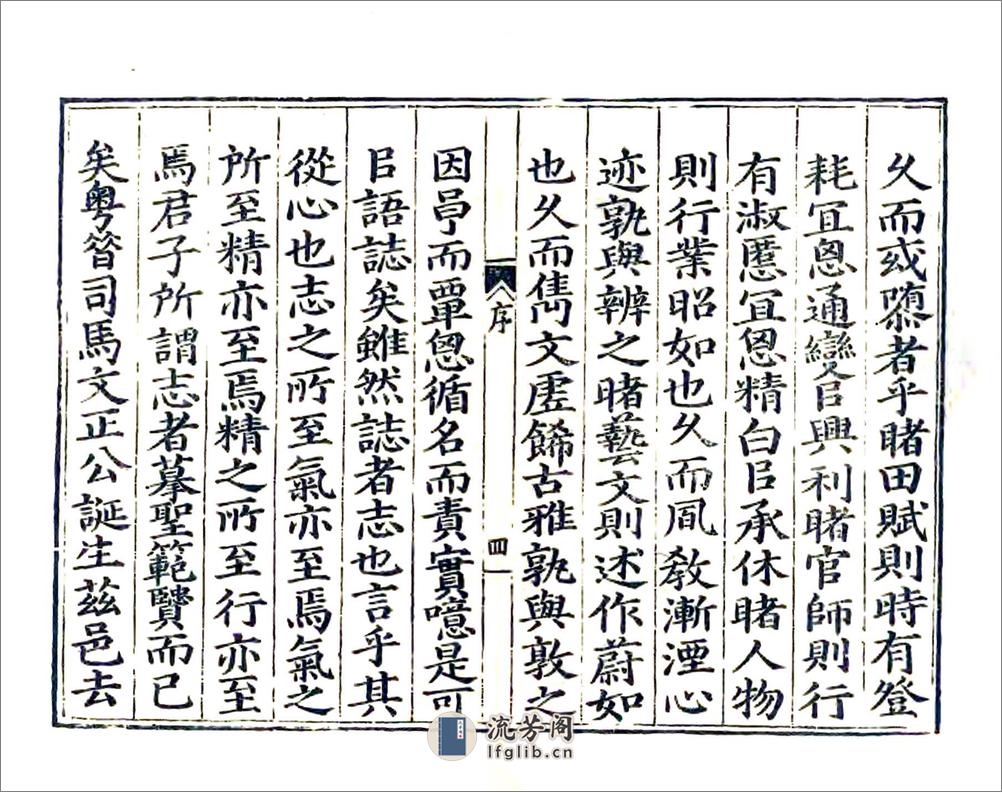 久而或隳者乎睹田賦則時有登
耗宜思通變㠯興利睹官師則行
有淑慝宜思精白㠯承休睹人物
則行業昭如也久而風敎漸湮心
迹孰與辨之睹藝文則述作蔚如
也久而雋文虛餙古雅孰與敦之
序
四
因咼而覃思循名而責實噫是可
㠯語誌矣雖然誌者志也言乎其
從心也志之所至氣亦至焉氣之
所至精亦至焉精之所至行亦至
焉君子所謂志者摹聖範賢而已
矣粤昝司馬文正公誕生茲邑去
流芳阁
lfglib.cn